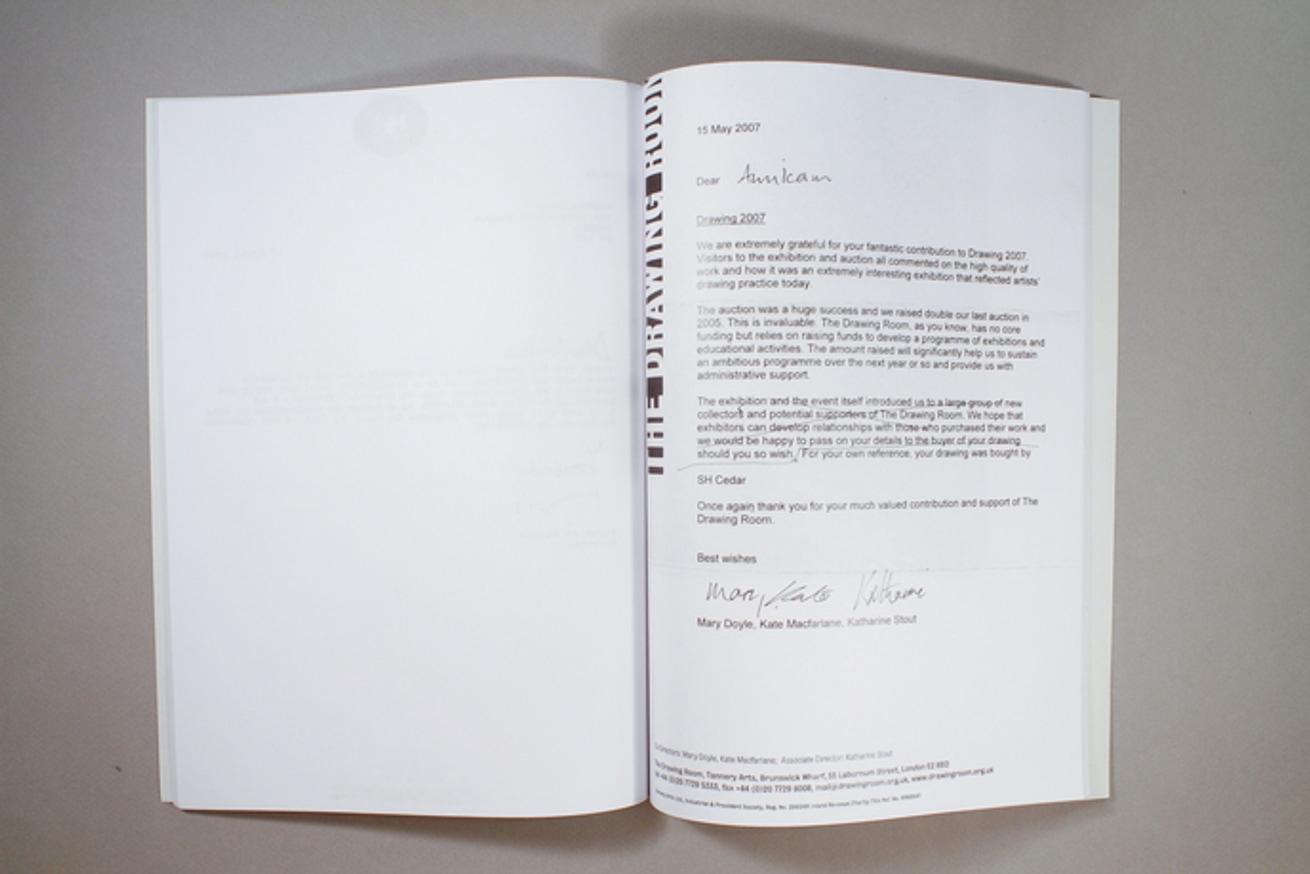 THE DRAWING ROOM
15 May 2007
Dear Amikam
Drawing 2007
We are extremely grateful for your fantastic contribution to Drawing 2007.
Visitors to the exhibition and auction all commented on the high quality of
work and how it was an extremely interesting exhibition that reflected artists'
drawing practice today.
The auction was a huge success and we raised double our last auction in
2005. This is invaluable. The Drawing Room, as you know, has no core
funding but relies on raising funds to develop a programme of exhibitions and
educational activities. The amount raised will significantly help us to sustain
an ambitious programme over the next year or so and provide us with
administrative support.
The exhibition and the event itself introduced us to a large group of new
collectors and potential supporters of The Drawing Room. We hope that
exhibitors can develop relationships with those who purchased their work and
we would be happy to pass on your details to the buyer of your drawing
should you so wish. / For your own reference, your drawing was bought by
SH Cedar
Once again thank you for your much valued contribution and support of The
Drawing Room.
Best wishes
Mary Kate Katharine
Mary Doyle, Kate Macfarlane, Katharine Stout
Directors: Mary Doyle, Kate Macfarlane; Associate Director: Katharine Stout
The Drawing Room, Tannery Arts, Brunswick Wharf, 55 Laburnum Street, London E2 8BD
tel +44 (0)20 7729 5333, fax +44 (0)20 7729 8008, mail@drawingroom.org.uk, www.drawingroom.org.uk
Tannery Arts Ltd, Industrial & Provident Society, Reg. No.